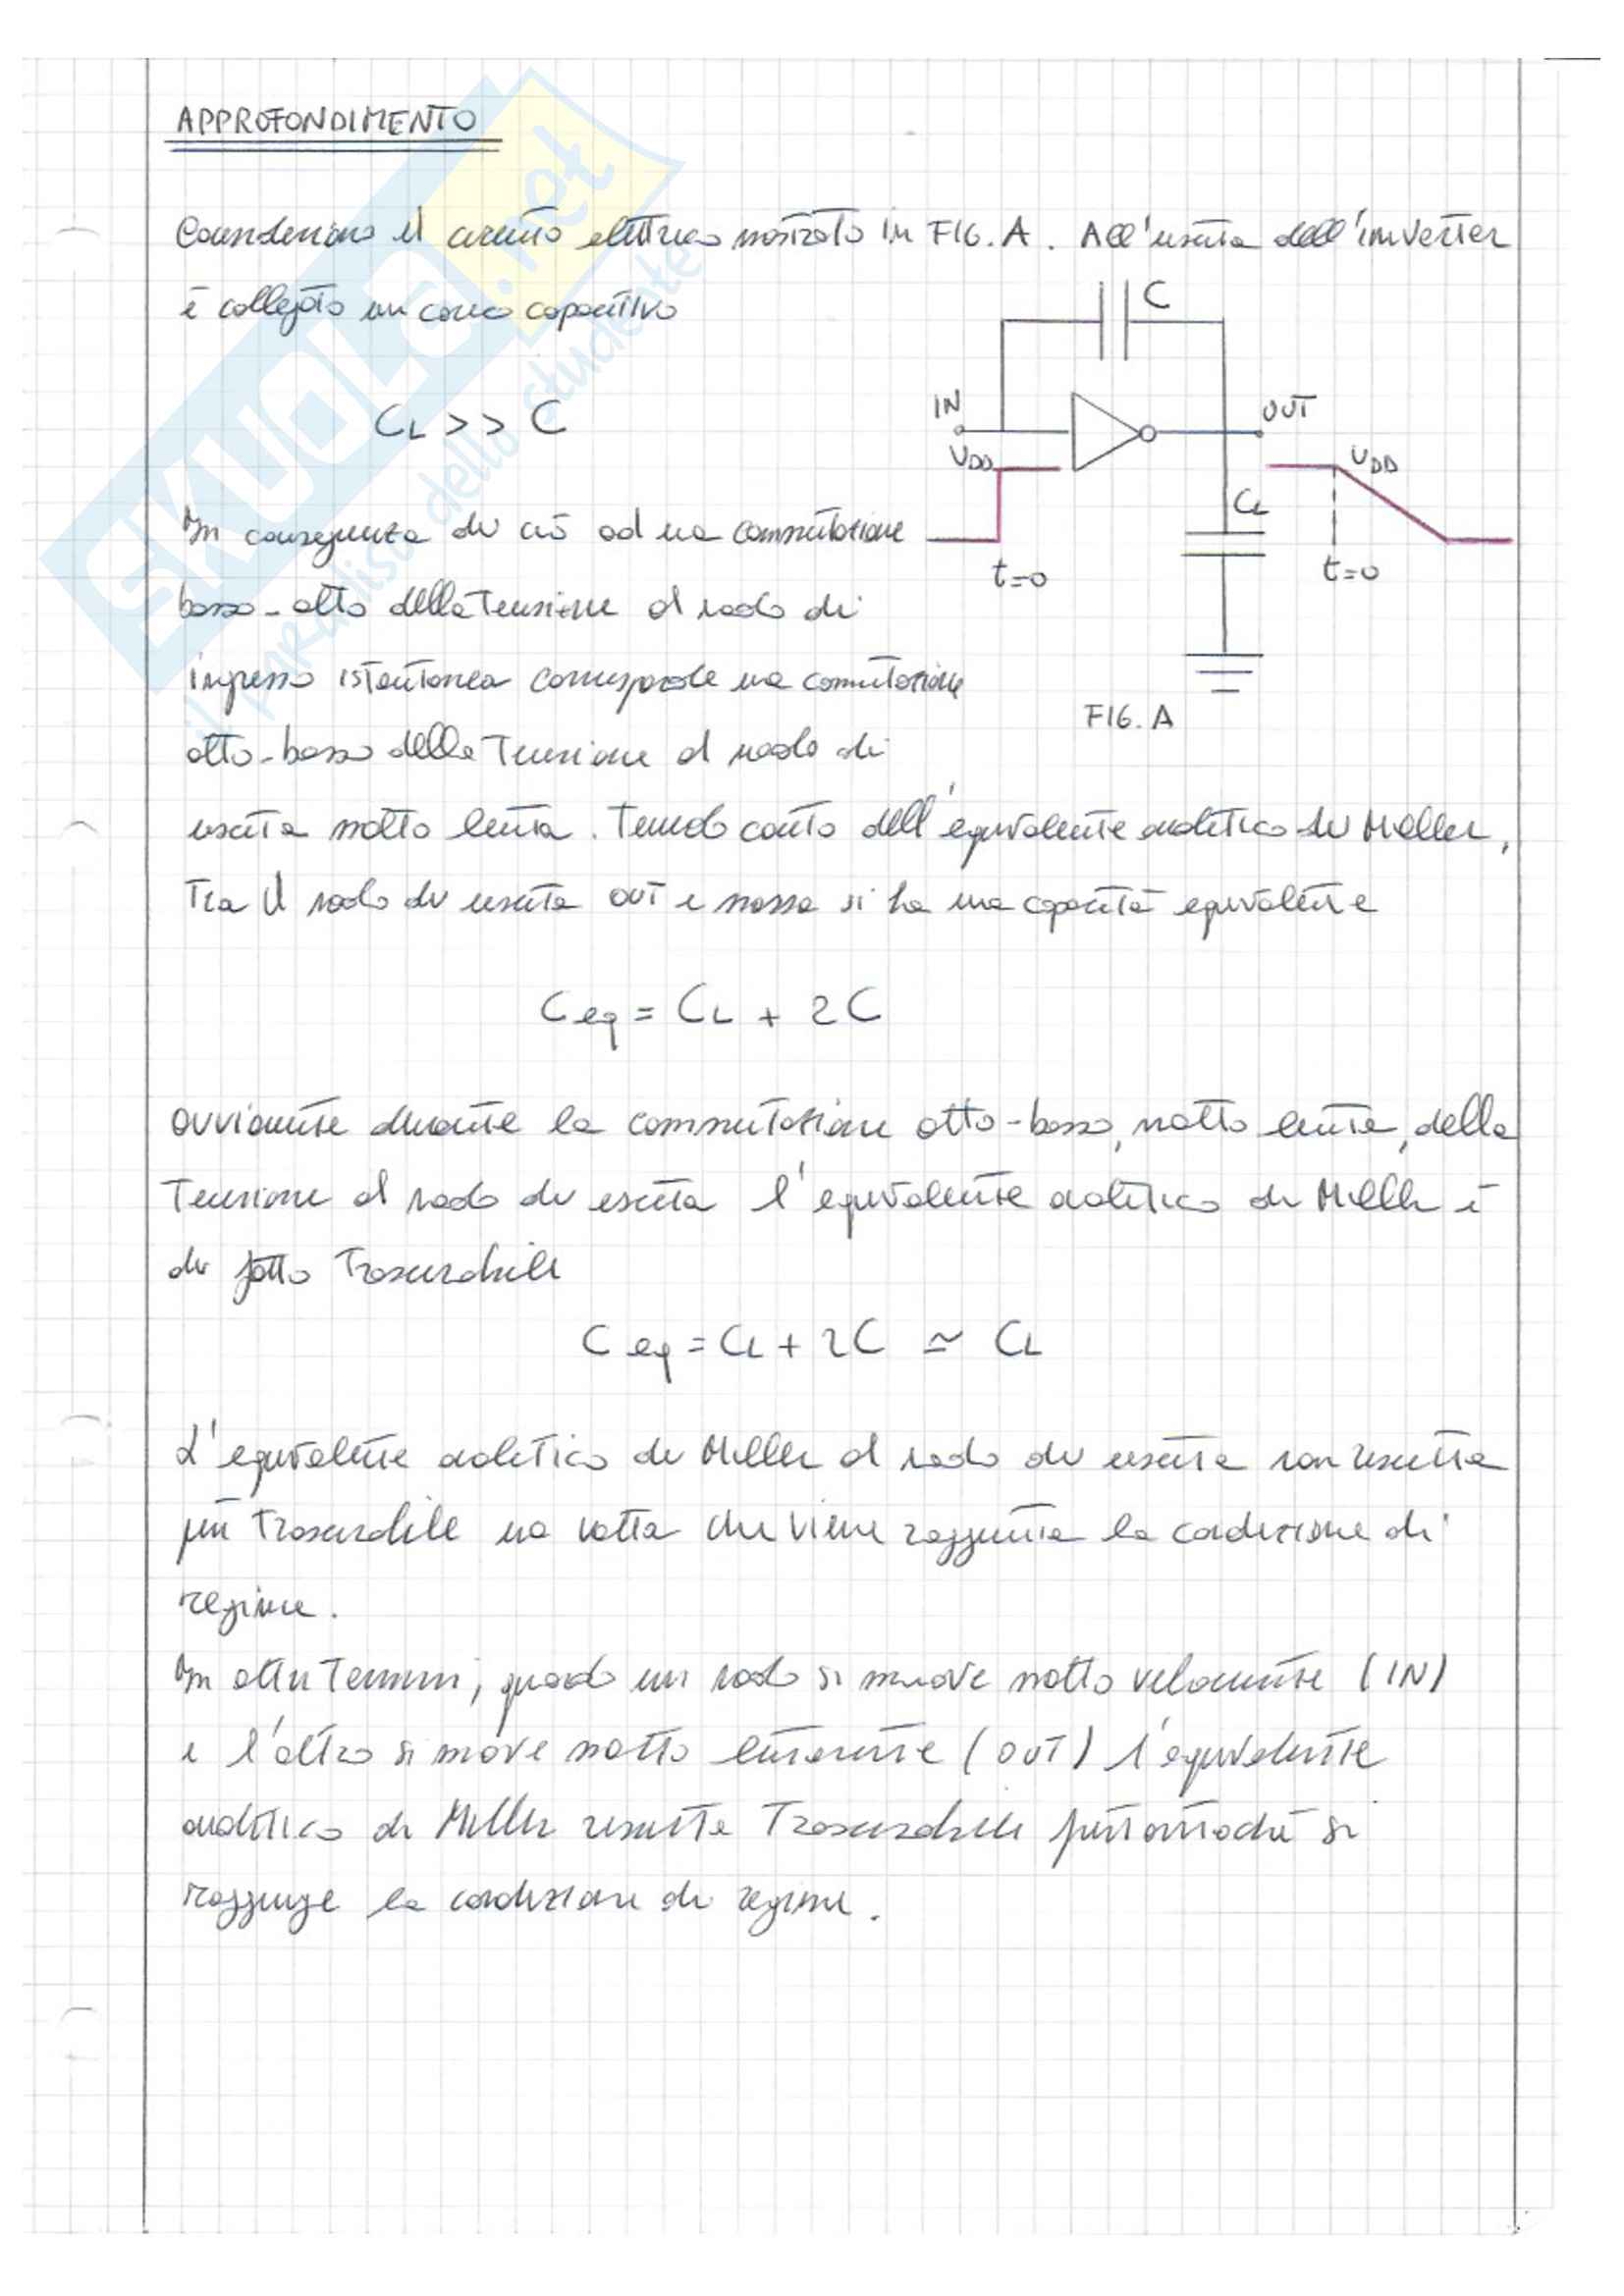 APPROFONDIMENTO
Consideriamo il circuito elettrico mostrato in FIG. A. All'uscita dell'inverter
è collegato un carico capacitivo
C
CL >> C
IN
OUT
VDD
VDD
CL
In conseguenza di ciò ad una commutazione
t=0
t=0
basso-alto della tensione al nodo di
ingresso istantanea corrisponde una commutazione
FIG. A
alto-basso della tensione al nodo di
uscita molto lenta. Tenendo conto dell'equivalente analitico di Miller,
tra il nodo di uscita OUT e massa si ha una capacità equivalente
Ceq = CL + 2C
Ovviamente durante la commutazione alto-basso, molto lenta, della
tensione al nodo di uscita l'equivalente analitico di Miller è
di fatto trascurabile
Ceq = CL + 2C ≃ CL
L'equivalente analitico di Miller al nodo di uscita non risulta
più trascurabile una volta che viene raggiunta la condizione di
regime.
In altri termini, quando un nodo si muove molto velocemente (IN)
e l'altro si move molto lentamente (OUT) l'equivalente
analitico di Miller risulta trascurabile fintantoché si
raggiunge la condizione di regime.
SKUOLA.net
il paradiso dello studente